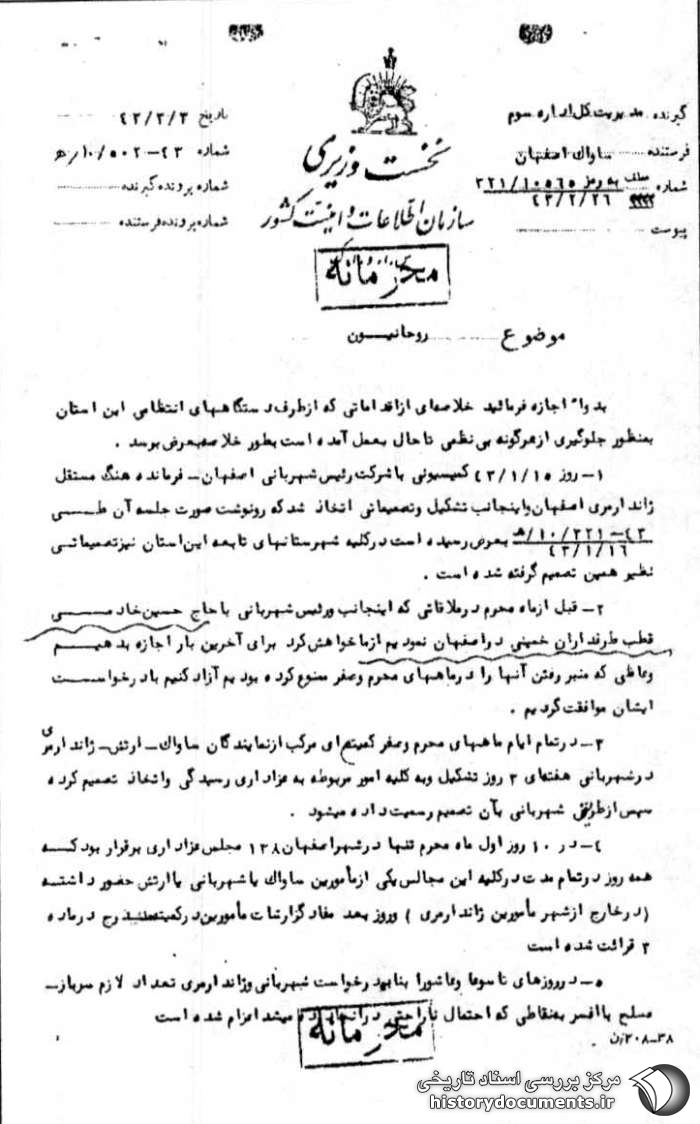 گیرنده مدیریت کل اداره سوم
فرستنده ساواک اصفهان
شماره عطف به رمز ۳۲۱/۱۰۵۶۵
۴۳/۲/۲۶
پیوست
نخست وزیری
سازمان اطلاعات و امنیت کشور
تاریخ ۴۳/۳/۳
شماره ۴۳–۵۰۲/۱۰/ه
شماره پرونده گیرنده
شماره پرونده فرستنده
محرمانه
موضوع روحانیون
بدواً اجازه فرمائید خلاصه‌ای از اقداماتی که از طرف دستگاههای انتظامی این استان
بمنظور جلوگیری از هرگونه بی نظمی تا حال بعمل آمده است بطور خلاصه بعرض برسد .
۱– روز ۴۳/۱/۱۵ کمیسیونی با شرکت رئیس شهربانی اصفهان – فرمانده هنگ مستقل
ژاندارمری اصفهان و اینجانب تشکیل و تصمیماتی اتخاذ شد که رونوشت صورت جلسه آن طی
۴۳–۲۲۱/۱۰/ه
۴۳/۱/۱۶
بعرض رسیده است در کلیه شهرستانهای تابعه این استان نیز تصمیماتی
نظیر همین تصمیم گرفته شده است .
۲– قبل از ماه محرم در ملاقاتی که اینجانب و رئیس شهربانی با حاج حسین خادمی
قطب طرفداران خمینی در اصفهان نمودیم از ما خواهش کرد برای آخرین بار اجازه بدهیم
وعاظی که منبر رفتن آنها را در ماههای محرم و صفر ممنوع کرده بودیم آزاد کنیم با درخواست
ایشان موافقت گردیم .
۳– در تمام ایام ماههای محرم و صفر کمیته‌ای مرکب از نمایندگان ساواک – ارتش – ژاندارمری
در شهربانی هفته‌ای ۳ روز تشکیل و به کلیه امور مربوطه به عزاداری رسیدگی و اتخاذ تصمیم کرده
سپس از طریق شهربانی بآن تصمیم رسمیت داده میشود .
۴– در ۱۰ روز اول ماه محرم تنها در شهر اصفهان ۱۳۸ مجلس عزاداری برقرار بود که
همه روز در تمام مدت در کلیه این مجالس یکی از مأمورین ساواک یا شهربانی یا ارتش حضور داشته
(در خارج از شهر مأمورین ژاندارمری ) و روز بعد مفاد گزارشات مأمورین در کمیته مندرج در ماده
۳ قرائت شده است
۵– در روزهای تاسوعا و عاشورا بنا بدرخواست شهربانی و ژاندارمری تعداد لازم سرباز –
مسلح با افسر بنقاطی که احتمال ناراحتی در آنجا داده میشد اعزام شده است
محرمانه
مرکز بررسی اسناد تاریخی
historydocuments.ir